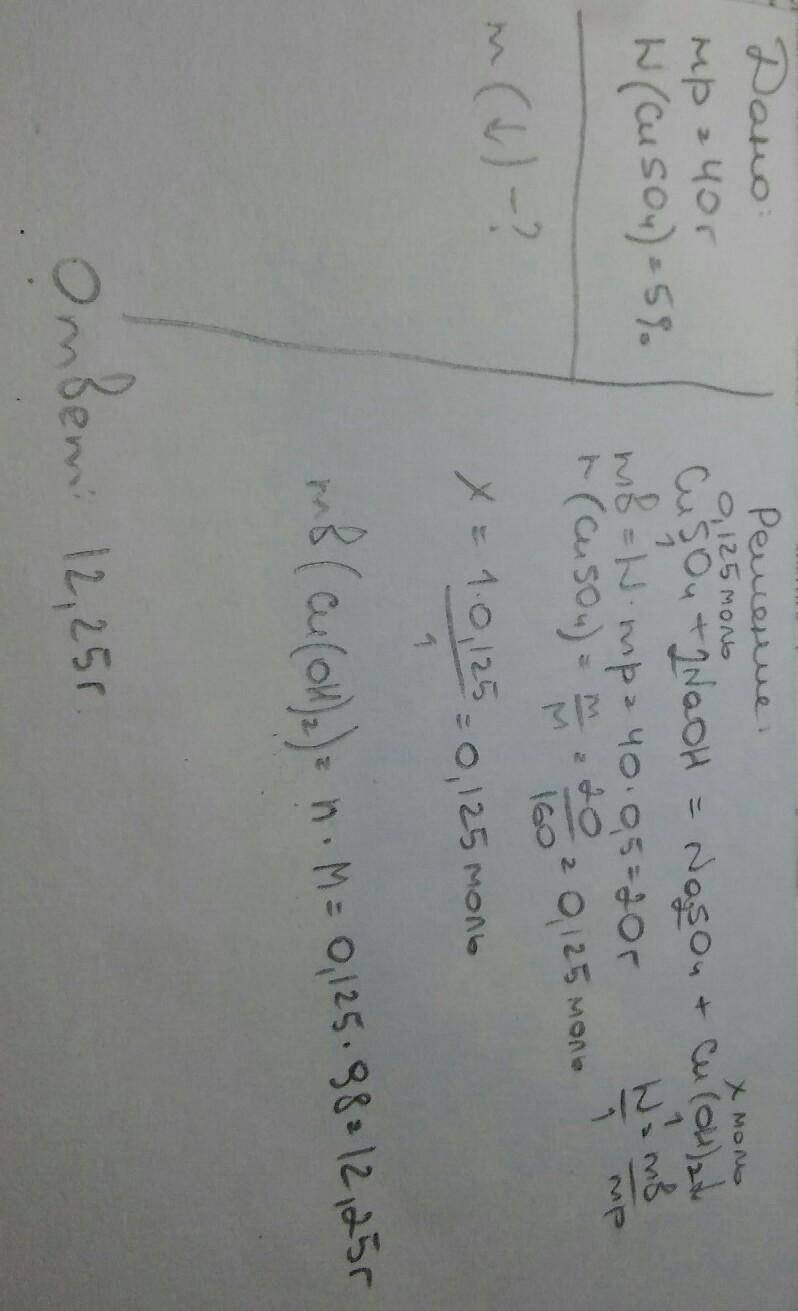 Дано:
mр = 40г
W(CuSO₄) = 5%
m(↓) - ?
Решение:
0,125 моль
x моль
CuSO₄ + 2NaOH = Na₂SO₄ + Cu(OH)₂↓
1
1
mв = W · mр = 40 · 0,5 = 20г
W/1 = mв/mр
n(CuSO₄) = m/M = 20/160 = 0,125 моль
x = 1·0,125/1 = 0,125 моль
mв(Cu(OH)₂) = n · M = 0,125 · 98 = 12,25г
Ответ: 12,25г